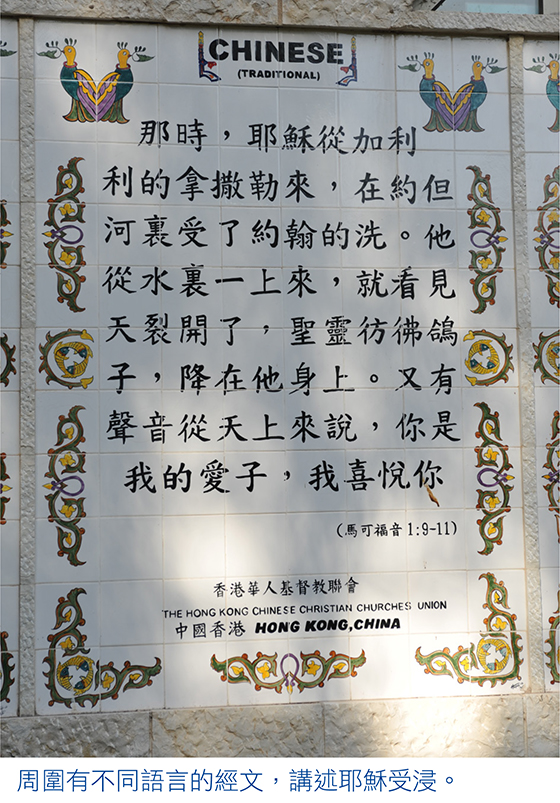 CHINESE
(TRADITIONAL)
那時，耶穌從加利
利的拿撒勒來，在約但
河裏受了約翰的洗。他
從水裏一上來，就看見
天裂開了，聖靈彷彿鴿
子，降在他身上。又有
聲音從天上來說，你是
我的愛子，我喜悅你
(馬可福音1:9-11)
香港華人基督教聯會
THE HONG KONG CHINESE CHRISTIAN CHURCHES UNION
中國香港 HONG KONG,CHINA
周圍有不同語言的經文，講述耶穌受浸。